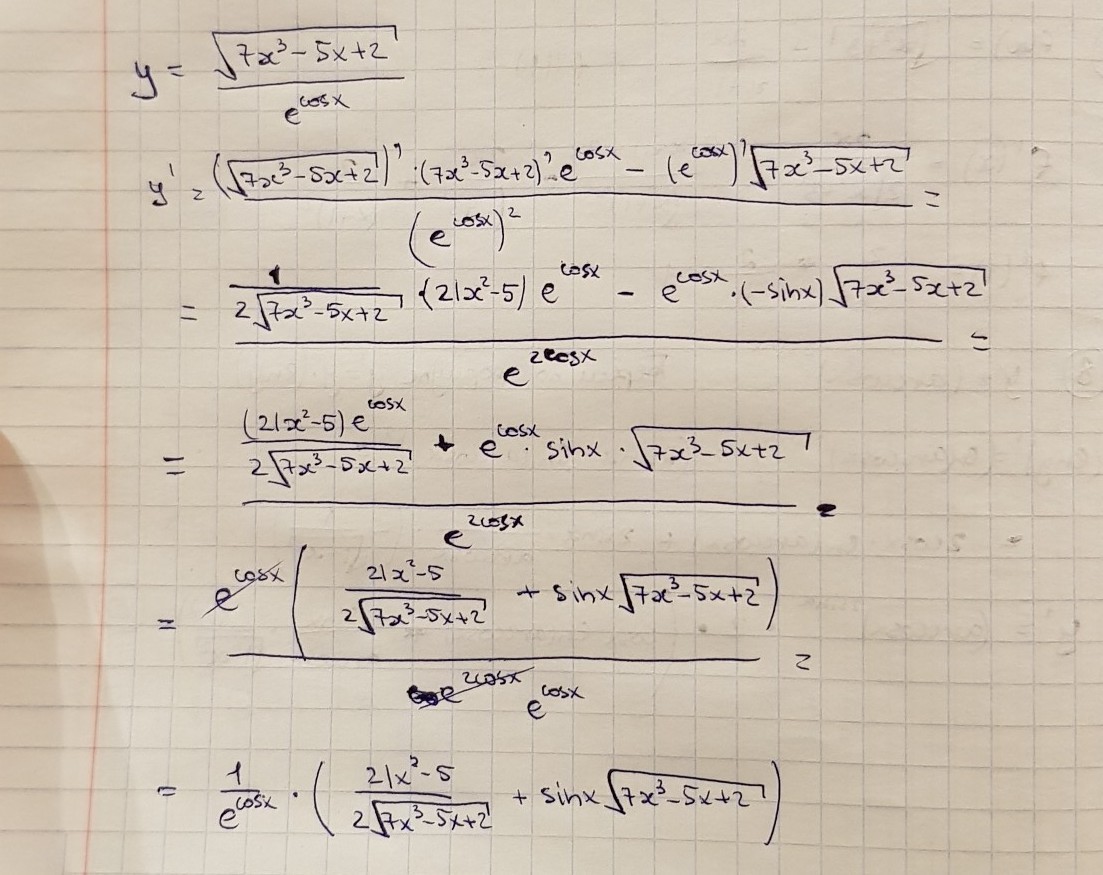 y = √(7x³ - 5x + 2) / e^(cosx)
y' = ((√(7x³ - 5x + 2))' · (7x³ - 5x + 2)' · e^(cosx) - (e^(cosx))' √(7x³ - 5x + 2)) / (e^(cosx))² =
= (1 / (2√(7x³ - 5x + 2)) · (21x² - 5) e^(cosx) - e^(cosx) · (-sinx) √(7x³ - 5x + 2)) / e^(2cosx) =
= ((21x² - 5) e^(cosx) / (2√(7x³ - 5x + 2)) + e^(cosx) · sinx · √(7x³ - 5x + 2)) / e^(2cosx) =
= e^(cosx) ((21x² - 5) / (2√(7x³ - 5x + 2)) + sinx √(7x³ - 5x + 2)) / e^(2cosx) e^(cosx) =
= 1 / e^(cosx) · ((21x² - 5) / (2√(7x³ - 5x + 2)) + sinx √(7x³ - 5x + 2))